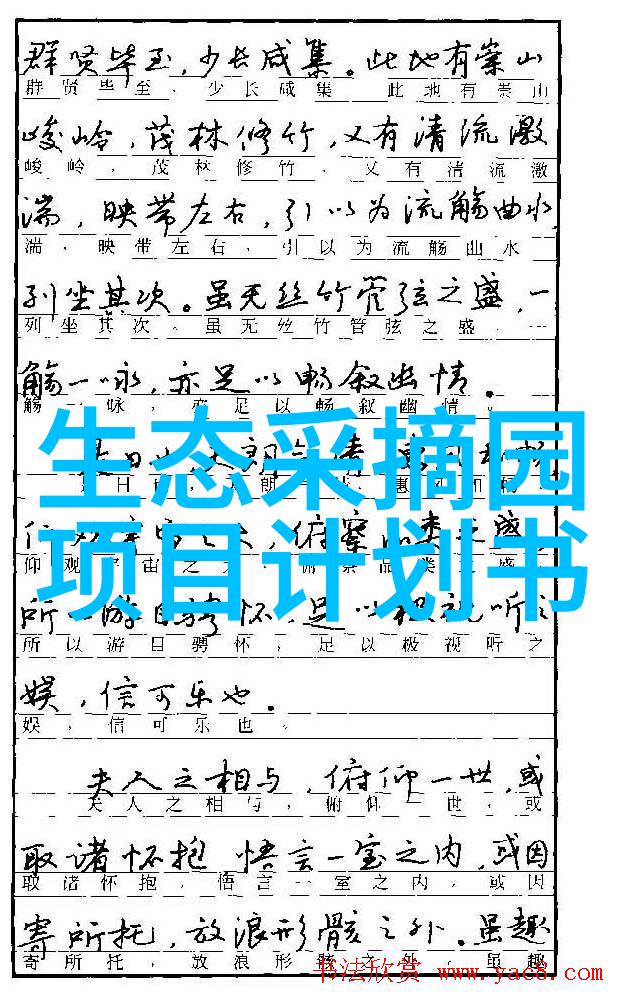 群贤毕至，少长咸集。此地有崇山
群贤毕至，少长咸集。此地有崇山
峻岭，茂林修竹，又有清流激
峻岭，茂林修竹，又有清流激
湍，映带左右，引以为流觞曲水，
湍，映带左右，引以为流觞曲水，
列坐其次。虽无丝竹管弦之盛，一
列坐其次。虽无丝竹管弦之盛，一
觞一咏，亦足以畅叙幽情。
觞一咏，亦足以畅叙幽情。
生态采摘园
项目计划书
仰观宇宙之大，俯察品类之盛，
所以游目骋怀，足以极视听之
所以游目骋怀，足以极视听之
娱，信可乐也。
娱，信可乐也。
夫人之相与，俯仰一世，或
夫人之相与，俯仰一世，或
取诸怀抱，悟言一室之内，或因
取诸怀抱，悟言一室之内，或因
寄所托，放浪形骸之外。虽趣
寄所托，放浪形骸之外。虽趣
书法欣赏 www.yac8.com